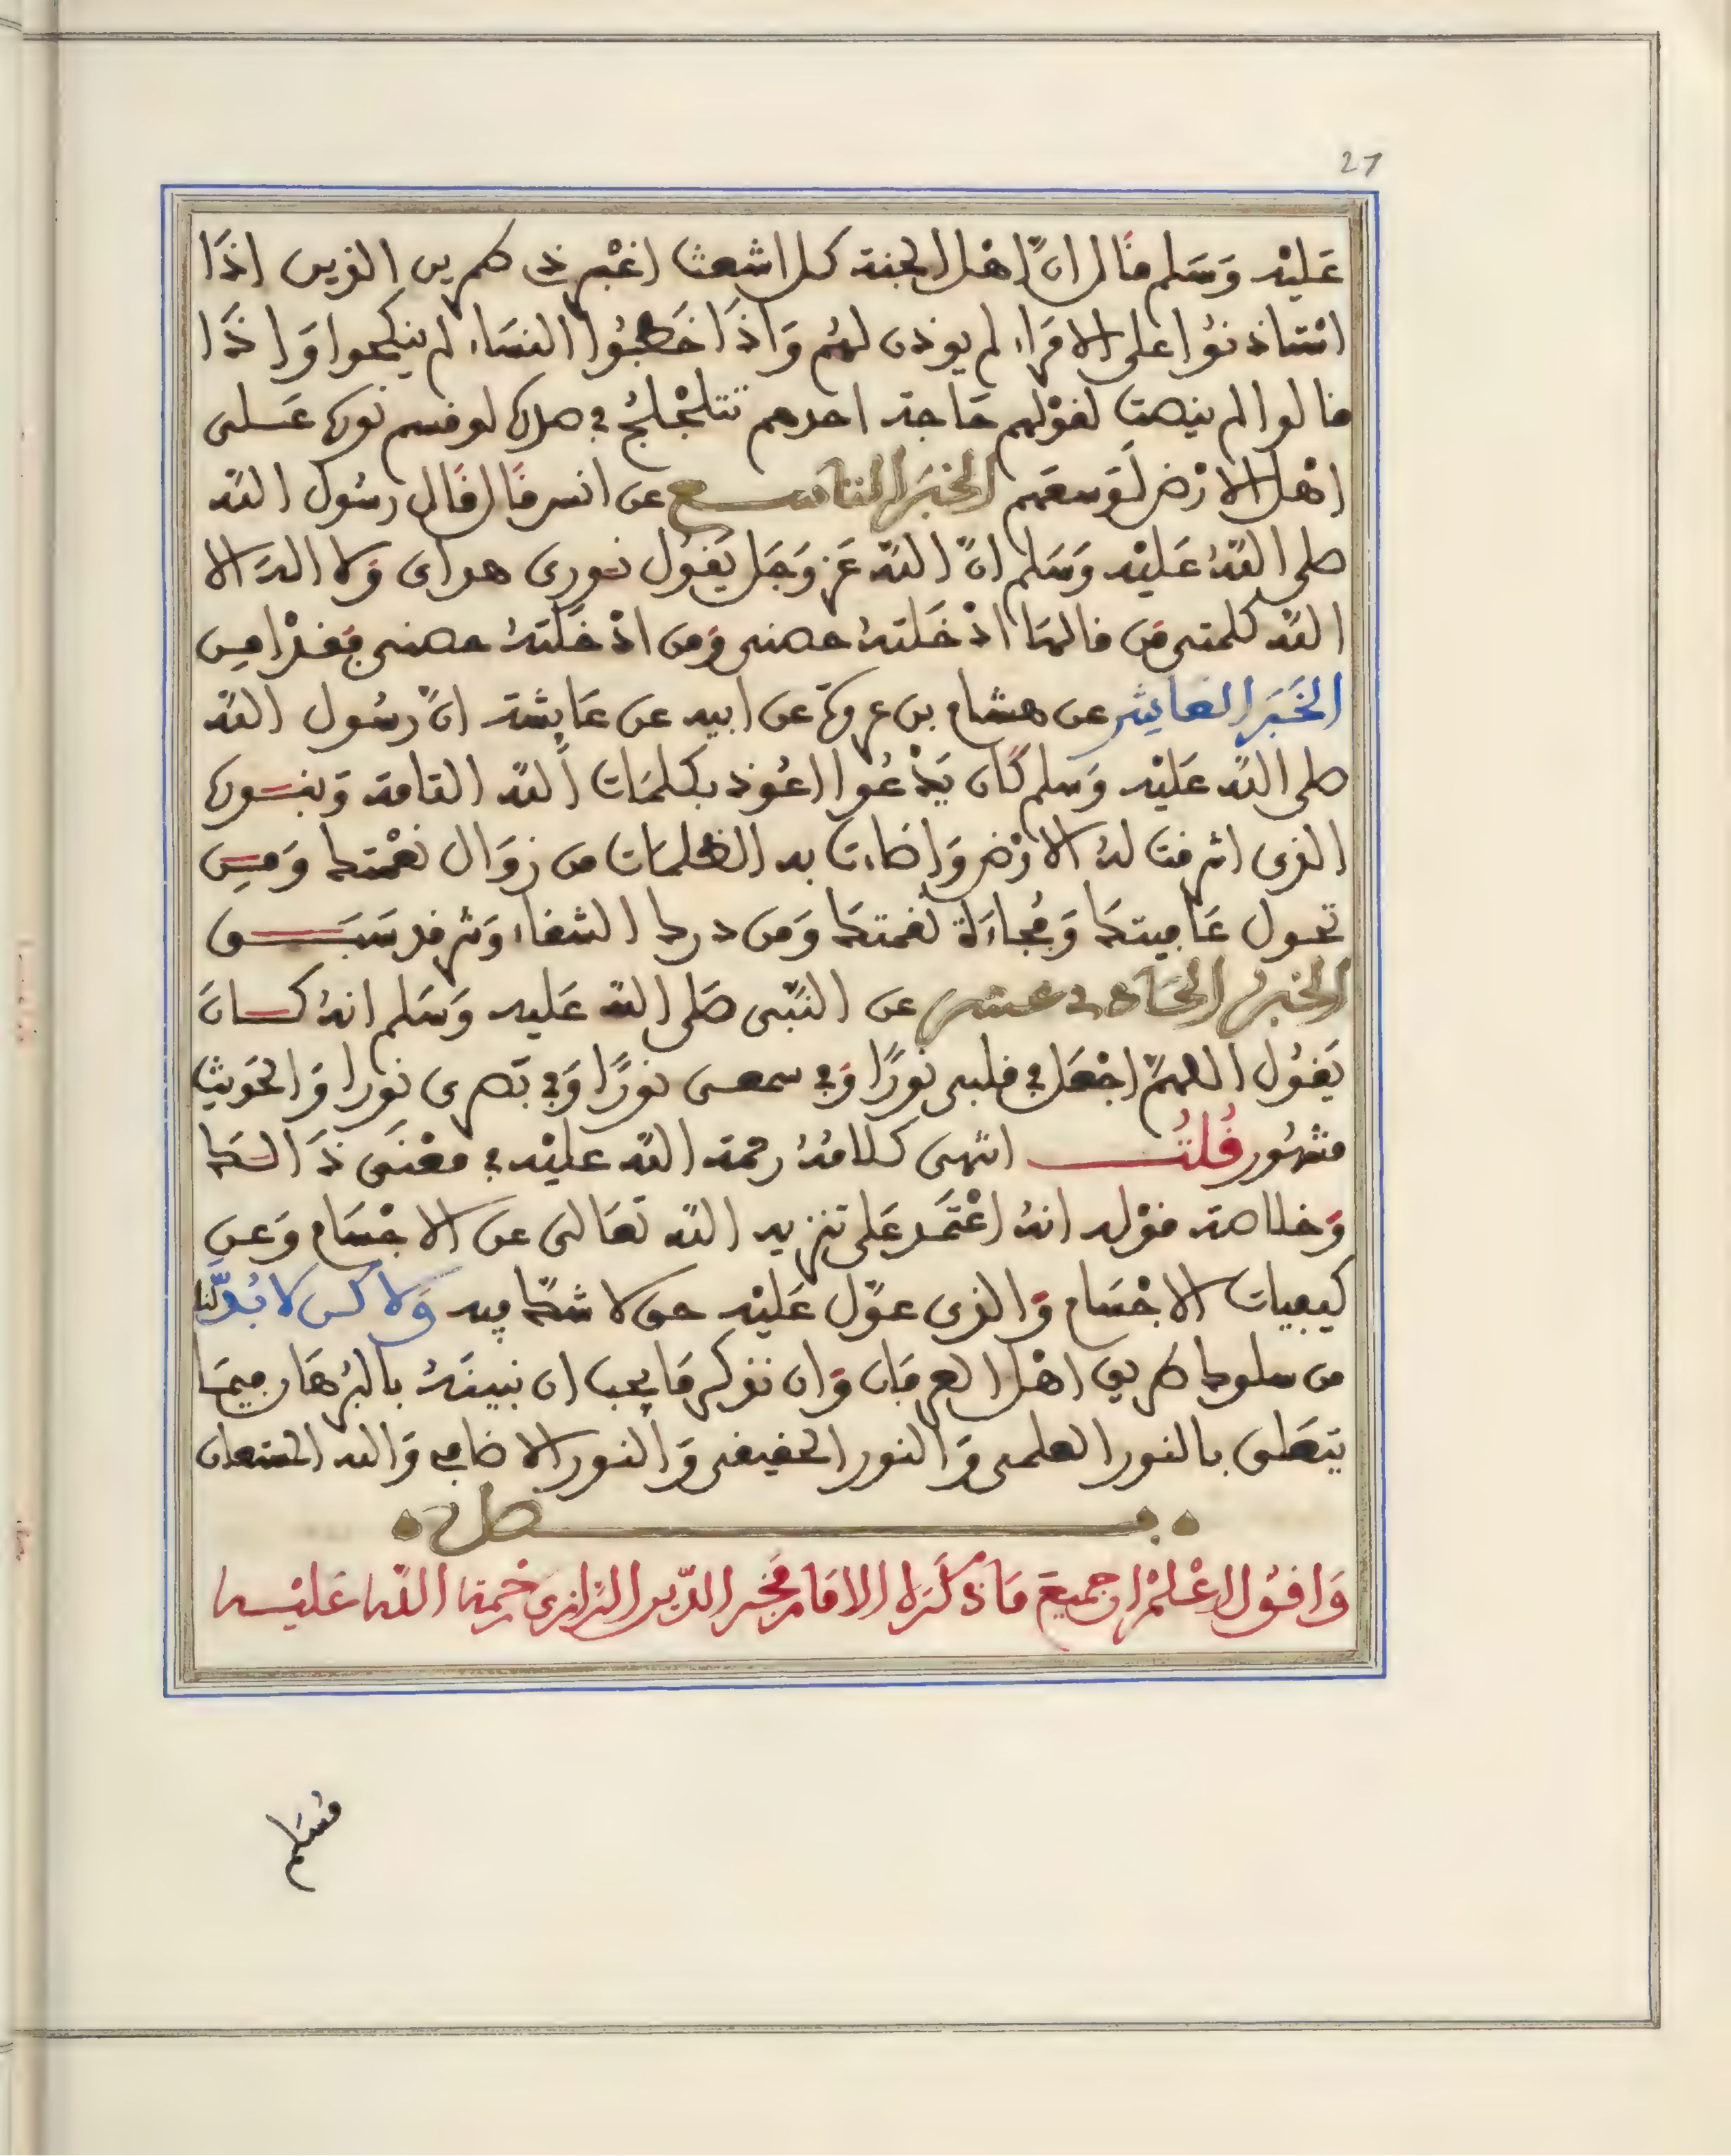 27
عَليْه وَسَلم فَال ان اهْل الجنة كل اشعث اغْبر ذى طمرين الذين اذَا
اسْتاذنوُا على الامَراء لم يوذن لهُم وَاذَا خَطبُوا النسَاء لم ينكحوا وَاذَا
فالوا لم ينصت لفوْلهم حَاجة احدهم تتلجْلجُ في صدره لو فسم نوره عَلى
اهْل الارْض لَوَسعَهم الخبَر التاسع عن انس فَال فَال رسُول الله
صلى اللهُ عَليْه وَسَلم انّ الله عَز وَجَل يَفول نورى هداى وَلا اله الا
الله كلمتى مَن فالهَا ادْخَلتهُ حصنى وَمن ادْخَلتهُ حصنى فَفدْ امن
الخَبَر العاشر عن هشام بن عروة عن ابيه عن عَايشة انّ رسُول الله
صلى الله عَليْه وَسَلم كَان يَدْعُوا اعُوذ بكلمَات الله التامة وَبنوره
الذى اشرفت لهُ الارْض وَاضاءت به الظلمَات من زوَال نعْمتك وَمن
تحول عَافيتكَ وَفُجاءَة نفمتكَ وَمن درك الشفاء وَشر فد سَبَق
الخبر الحَادى عشر عن النّبى صَلى الله عَليه وَسَلم انهُ كَانَ
يَفوُل اللهمّ اجْعَل في فلبى نورًا وَفي سمعى نورًا وَفي بَصرى نورا وَالحَديث
مشهُور فُلتُ انتهى كلامُهُ رحمة الله عليْه في معْنَى ذَالكَ
وَخلاصة فوْله انهُ اعْتَمَد عَلى تنزيه الله تعَالى عن الاجْسَام وَعن
كيفيات الاجْسَام وَالذى عوّل عَليْه حق لا شكّ فيه وَلاكن لا بُدَّ لنا
من سلوك طريق اهْل العرفان وَان نذكر مَا يجب ان نبينهُ بالبُرهَان فيمَا
يتعَلى بالنور العلمى وَالنور الحفيفى وَالنور الاضافي وَالله المستعان
فصل
وَافوُل اعْلمْ ان جميعَ مَا ذكَرَه الامَام فخر الدّين الرّازى رَحمة الله عَليْه
مُسَلم